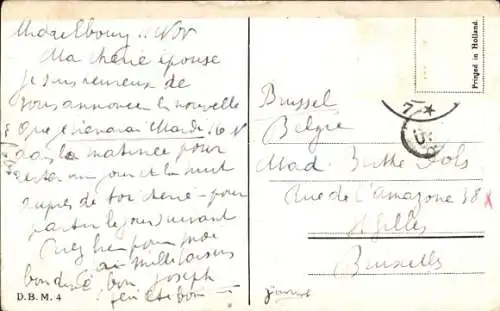 Middelbourg .. Nov
Ma chérie épouse
Je suis heureux de
vous annoncer la nouvelle
que je viendrai Mardi 16 N
dans la matinée pour
rester un jour et la nuit
auprès de toi chérie pour
partir le jour suivant
bien pour moi
mille baisers
bon Joseph
D. B. M. 4
Printed in Holland.
Brussel
Belgie
Mad. Berthe Fols
Rue de l'Amazone 38
St Gilles
Bruxelles